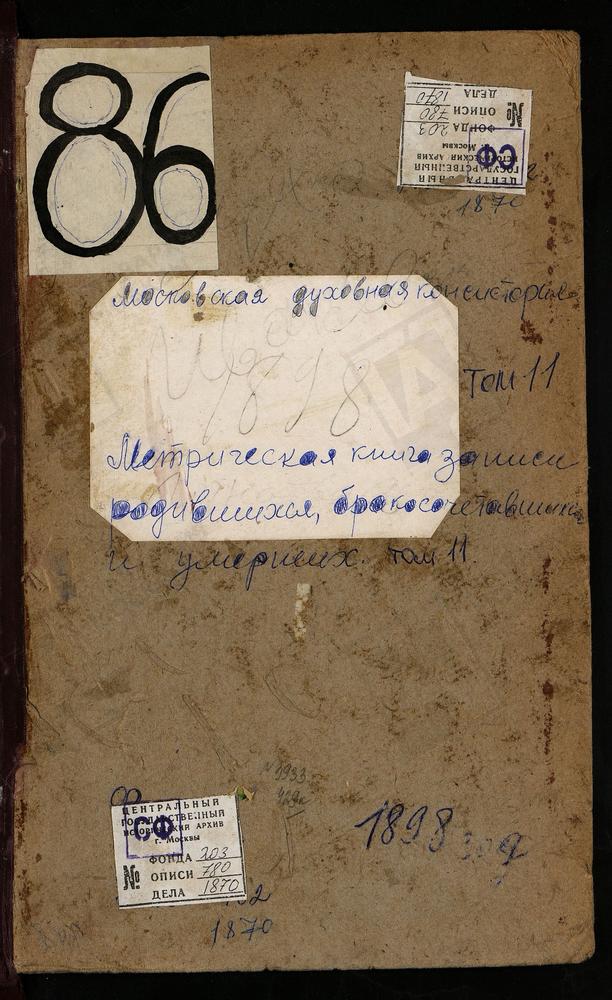 86
№
ДЕЛА 1870
ОПИСИ 780
ФОНДА 203
г. Москвы
ИСТОРИЧЕСКИЙ АРХИВ
ГОСУДАРСТВЕННЫЙ
ЦЕНТРАЛЬНЫЙ
СФ
1870
Московская духовная консистория
1898
том 11
Метрическая книга записи
родившихся, бракосочетавшихся
и умерших. том 11.
№1933
ЦЕНТРАЛЬНЫЙ
ГОСУДАРСТВЕННЫЙ
ИСТОРИЧЕСКИЙ АРХИВ
г. Москвы
СФ
№
ФОНДА 203
ОПИСИ 780
ДЕЛА 1870
1898 год
1870